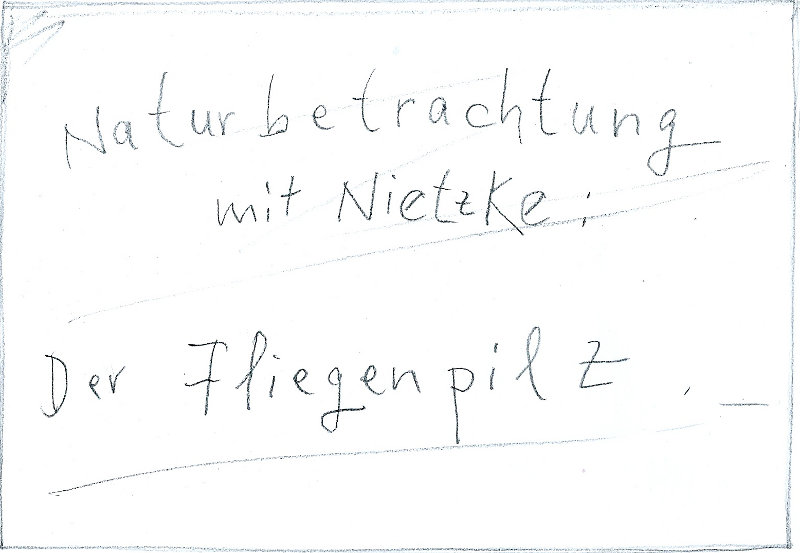 Naturbetrachtung
mit Nietzke:
Der Fliegenpilz. _